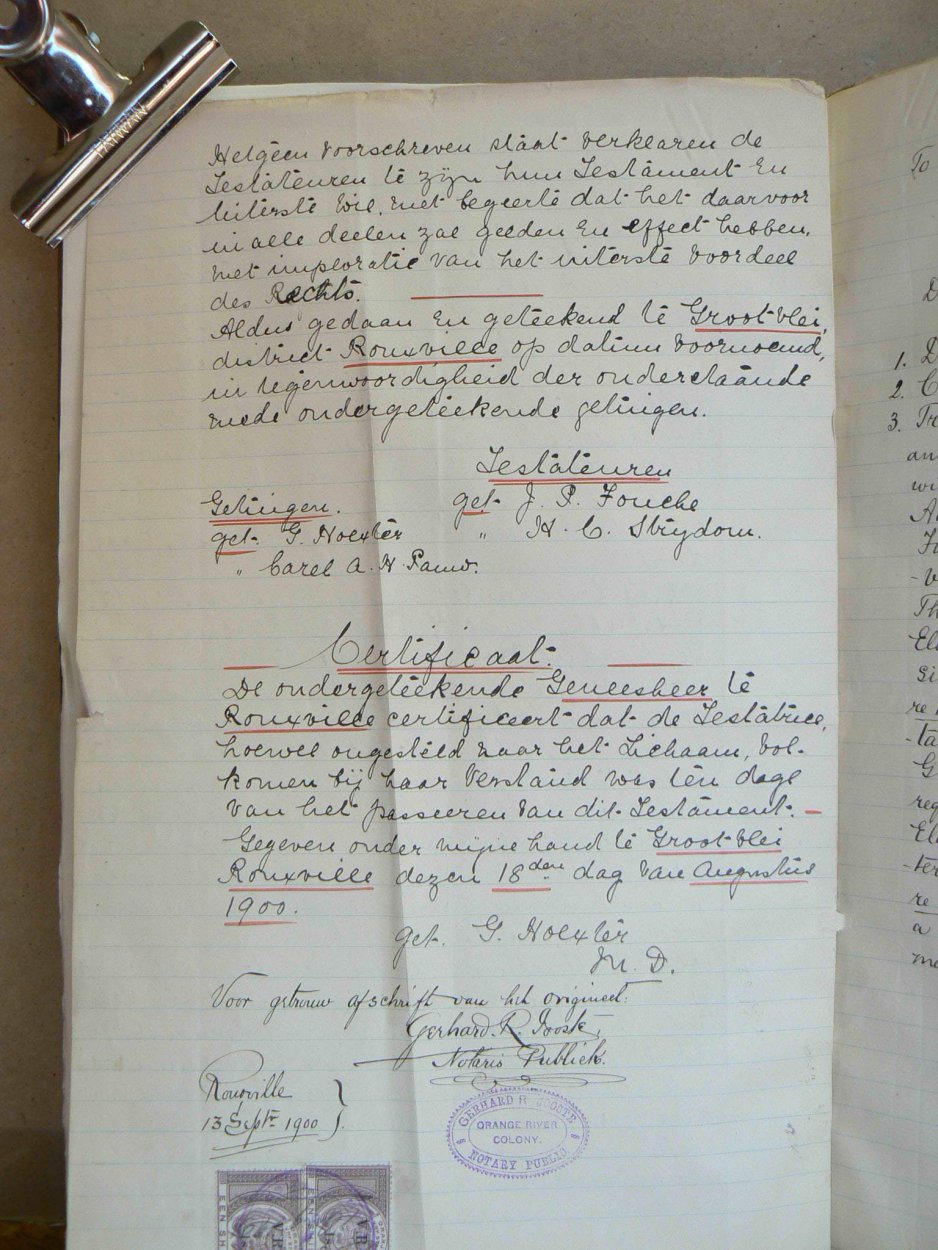 Hetgeen voorschreven staat verklaren de
Testateuren te zijn hun Testament en
Uiterste wil, met begeerte dat het daarvoor
in alle deelen zal gelden en effect hebben,
met imploratie van het uiterste voordeel
des Rechts.
Aldus gedaan en geteekend te Groot vlei,
district Rouxville op datum voornoemd,
in tegenwoordigheid der onderstaande
mede ondergeteekende getuigen.
Testateuren
Getuigen. get. J. P. Fouche
get. G. Hoexter " H. C. Strydom.
" Carel A. H.
Certificaat.
De ondergeteekende Geneesheer te
Rouxville certificeert dat de Testatrice,
hoewel ongesteld naar het Lichaam, vol-
komen bij haar verstand was ten dage
van het passeeren van dit Testament.
Gegeven onder mijne hand te Groot vlei
Rouxville dezen 18den dag van Augustus
1900.
get. G. Hoexter
M. D.
Voor getrouw afschrift van het origineel:
Gerhard. R. Jooste,
Notaris Publiek.
Rouxville
13 Septr 1900
GERHARD R JOOSTE
ORANGE RIVER
COLONY.
NOTARY PUBLIC
EEN SH
EEN SH
V.R.
To
D
1. D
2. C
3. Tr
an
wi
A
-v
Th
El
re
-ta
G
reg
El
-ter
re
a
me
TAIWAN